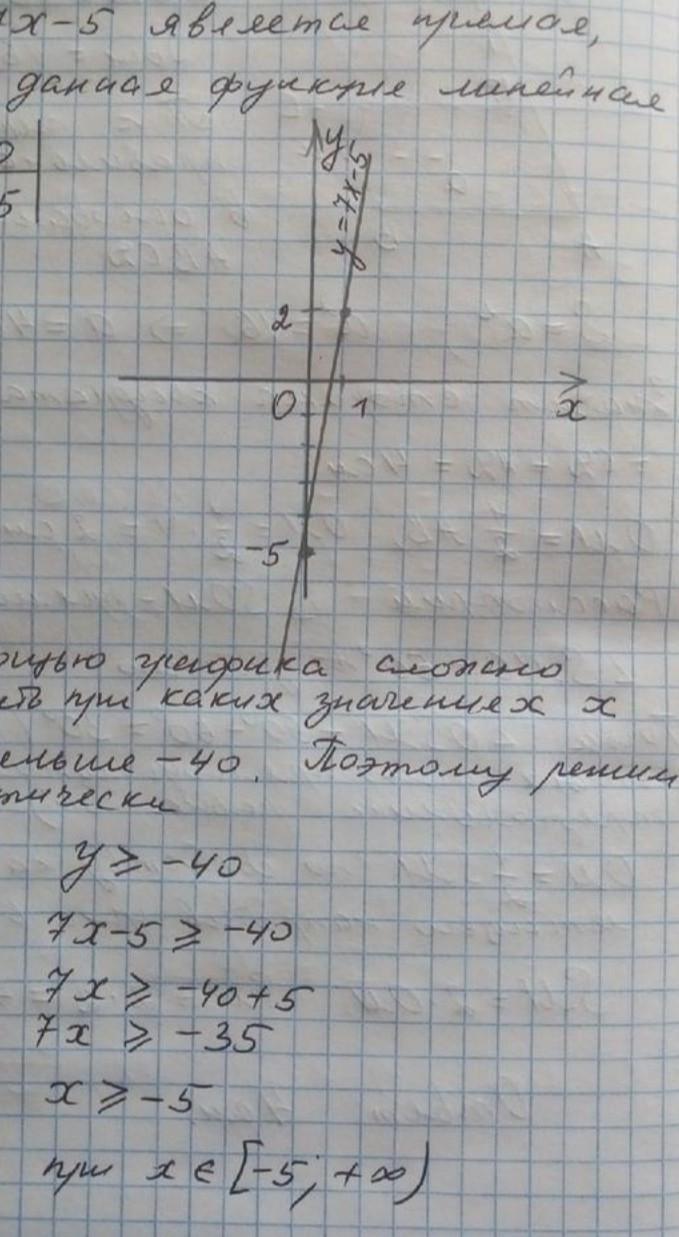 7x-5 является прямая,
данная функция линейная
0
5
y
y=7x-5
2
0 1 x
-5
ощью графика сложно
ть при каких значениях x
еньше -40. Поэтому решим
тически
y ⩾ -40
7x-5 ⩾ -40
7x ⩾ -40+5
7x ⩾ -35
x ⩾ -5
при x ∈ [-5; +∞)